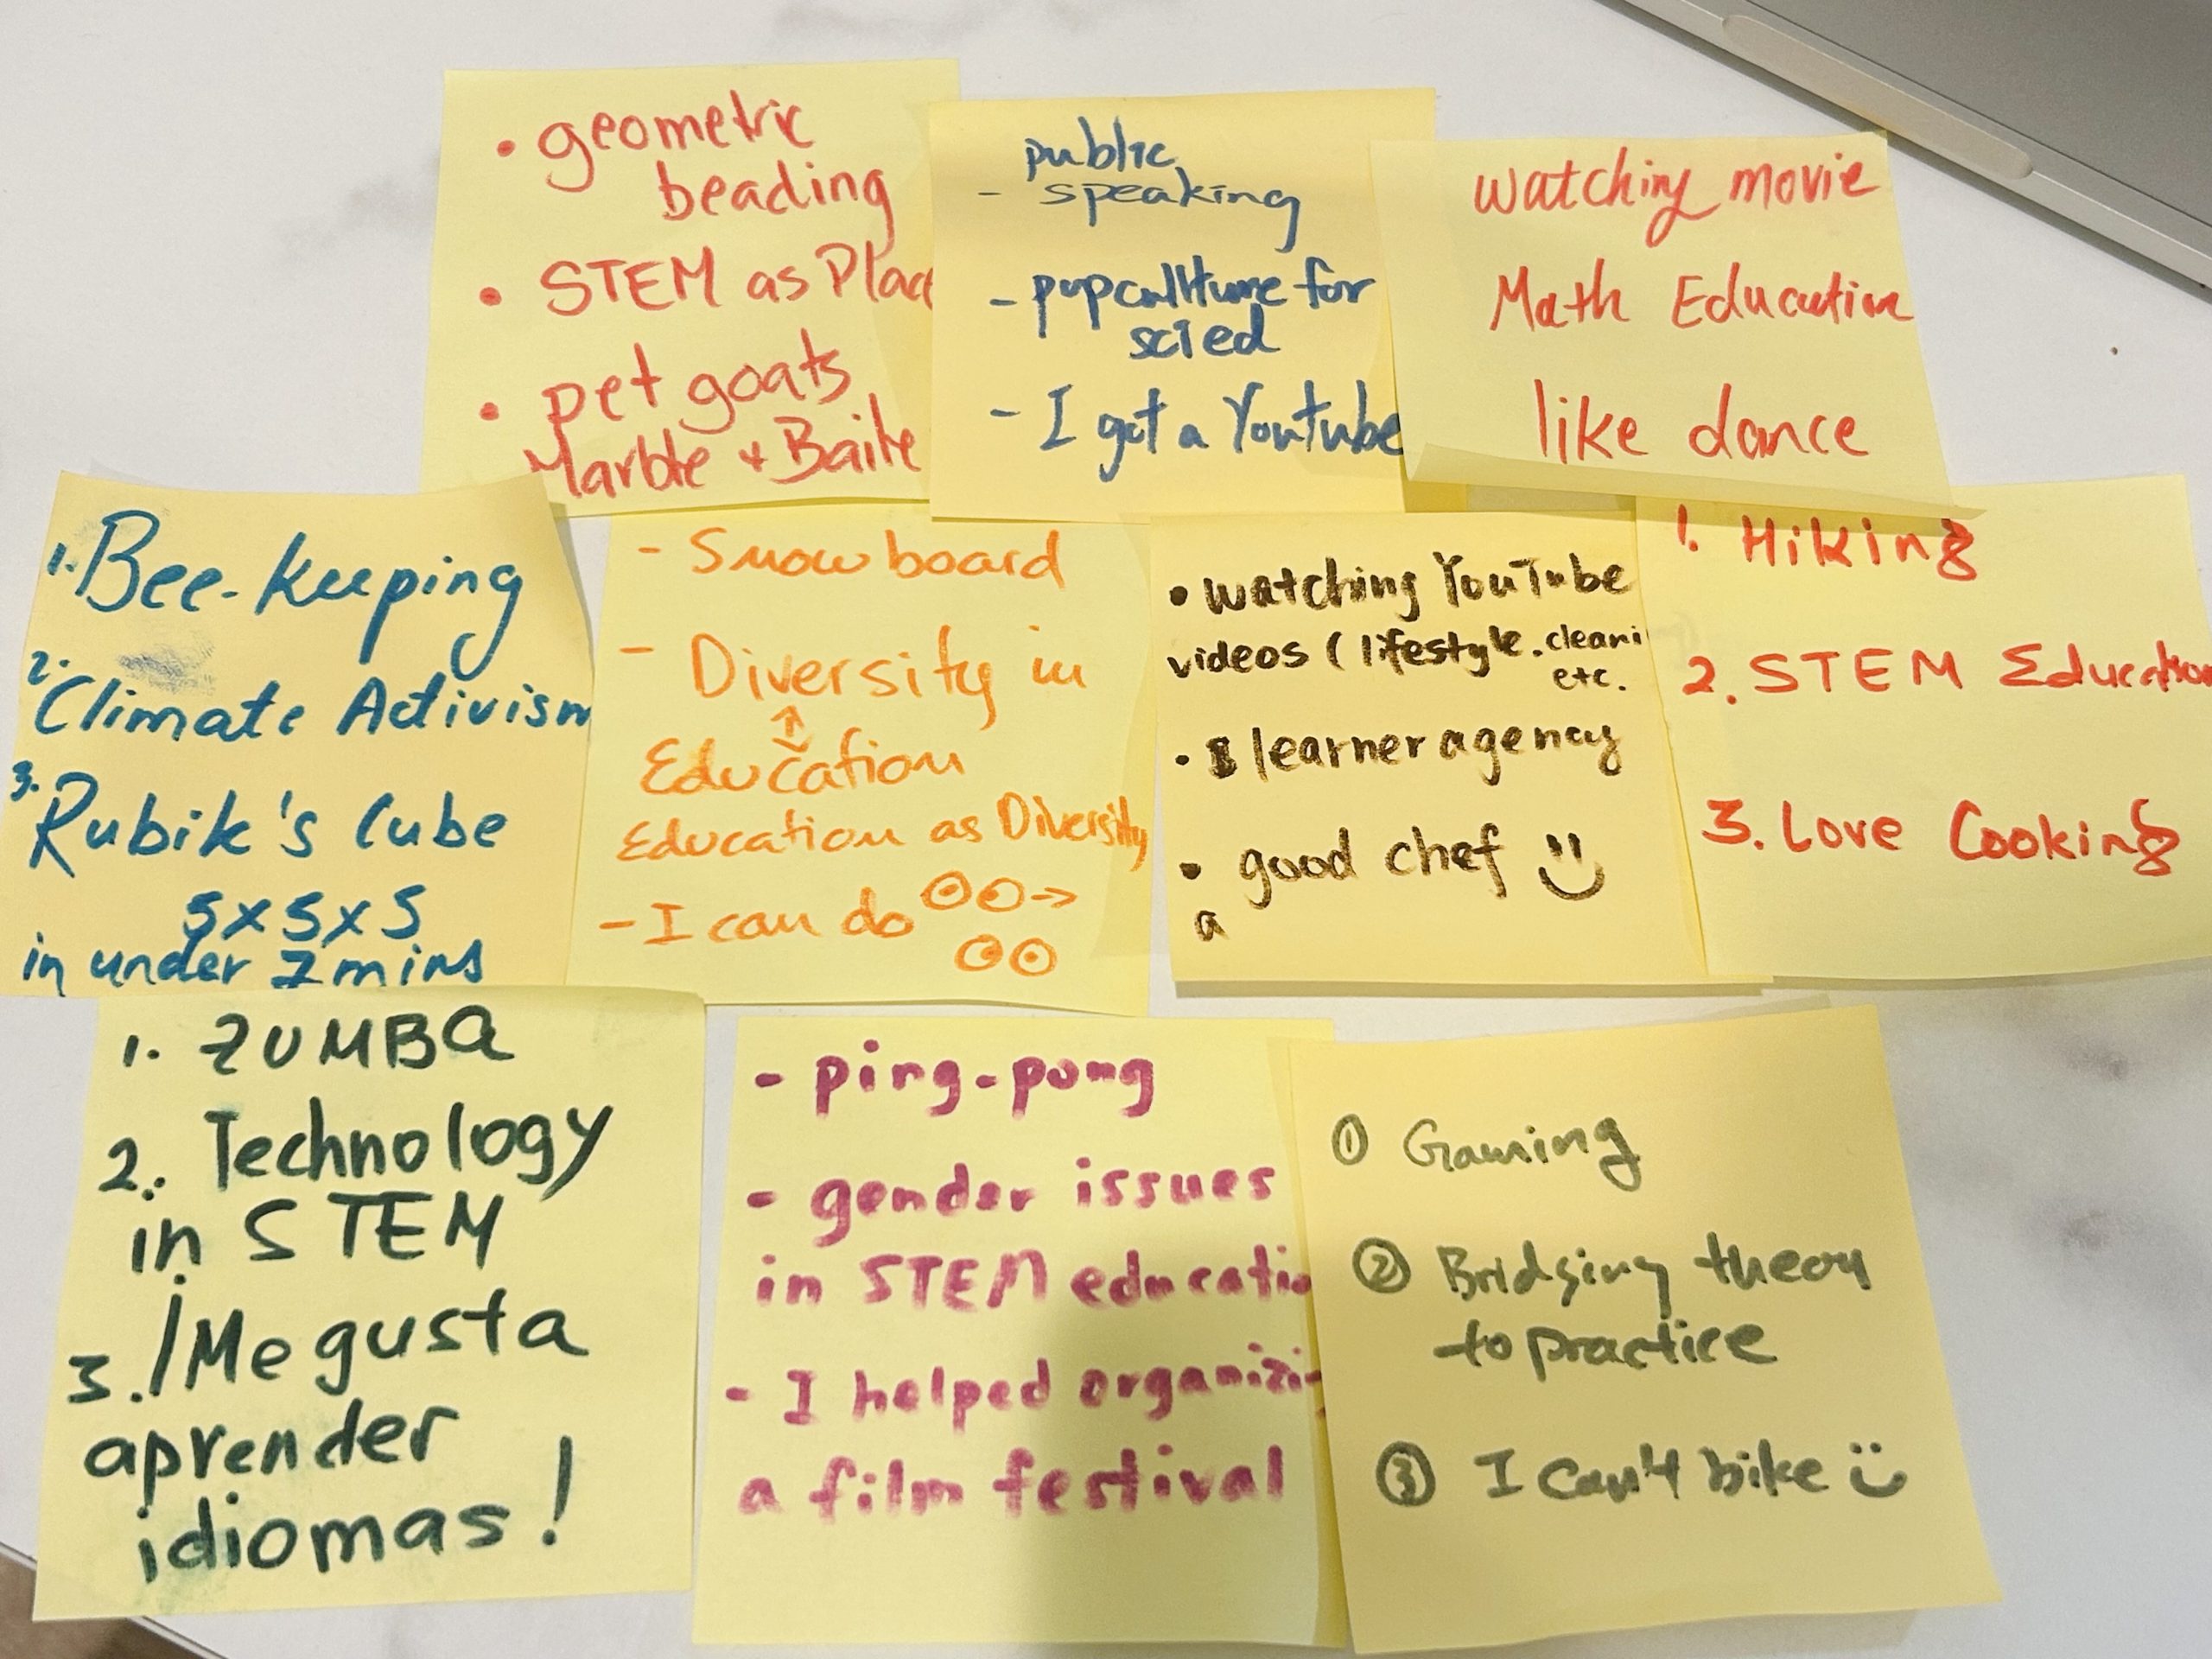 • geometric
beading
• STEM as Plac
• pet goats
Marble + Bailie
public
- speaking
- popculture for
scied
- I got a Youtube
watching movie
Math Education
like dance
1. Bee-keeping
2. Climate Activism
3. Rubik's Cube
5x5x5
in under 7 mins
- Snowboard
- Diversity in
Education
Education as Diversity
- I can do
• watching YouTube
videos (lifestyle. cleani
etc.
• learner agency
• good chef
a
1. Hiking
2. STEM Education
3. Love Cooking
1. ZUMBA
2. Technology
in STEM
3. ¡Me gusta
aprender
idiomas!
- ping-pong
- gender issues
in STEM educatio
- I helped organizi
a film festival
① Gaming
② Bridging theory
to practice
③ I can't bike